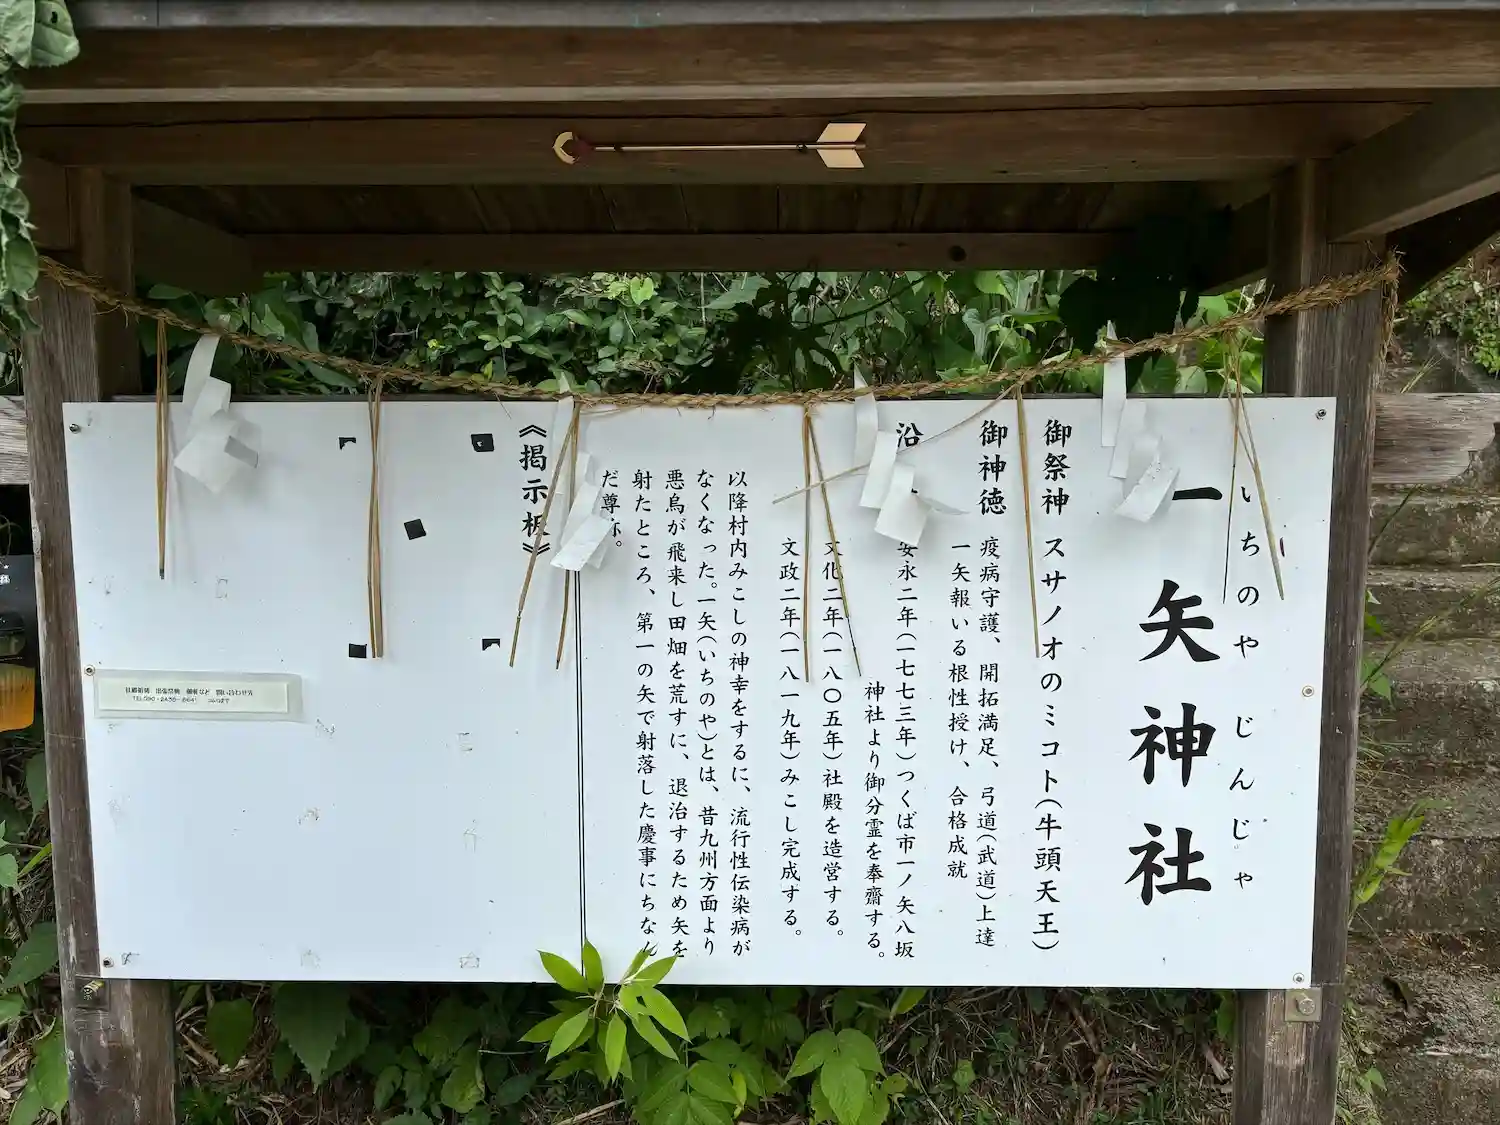 いちのや じんじゃ
一矢神社
御祭神 スサノオのミコト(牛頭天王)
御神徳 疫病守護、開拓満足、弓道(武道)上達
一矢報いる根性授け、合格成就
沿 安永二年(一七七三年)つくば市一ノ矢八坂
神社より御分霊を奉齋する。
文化二年(一八〇五年)社殿を造営する。
文政二年(一八一九年)みこし完成する。
以降村内みこしの神幸をするに、流行性伝染病が
なくなった。一矢(いちのや)とは、昔九州方面より
悪鳥が飛来し田畑を荒すに、退治するため矢を
射たところ、第一の矢で射落した慶事にちなん
だ尊称。
《掲示板》